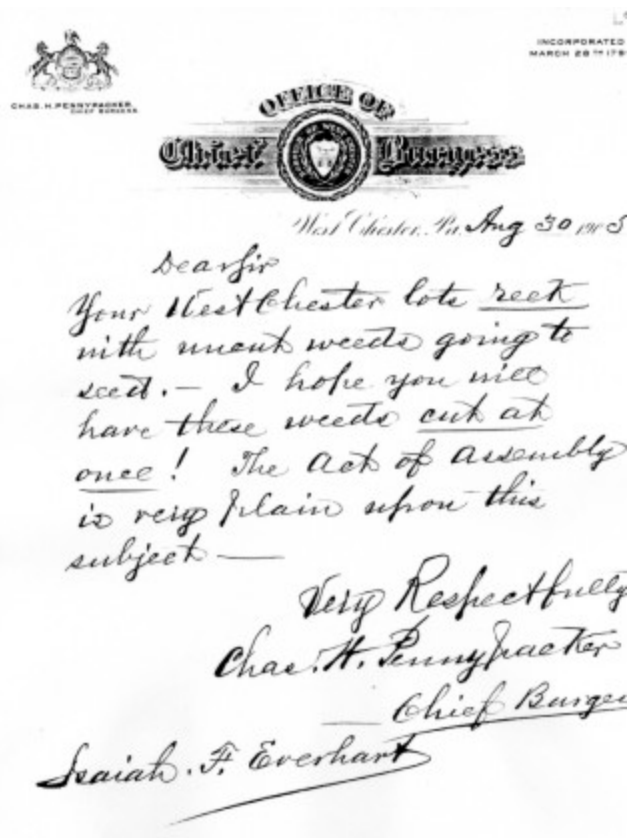 INCORPORATED
MARCH 28TH 179
CHAS. H. PENNYPACKER,
CHIEF BURGESS
OFFICE OF
Chief Burgess
West Chester, Pa. Aug 30 190
Dear Sir
Your West Chester lots reek
with uncut weeds going to
seed. — I hope you will
have these weeds cut at
once! The Act of Assembly
is very plain upon this
subject —
Very Respectfully
Chas. H. Pennypacker
— Chief Burges
Isaiah. F. Everhart